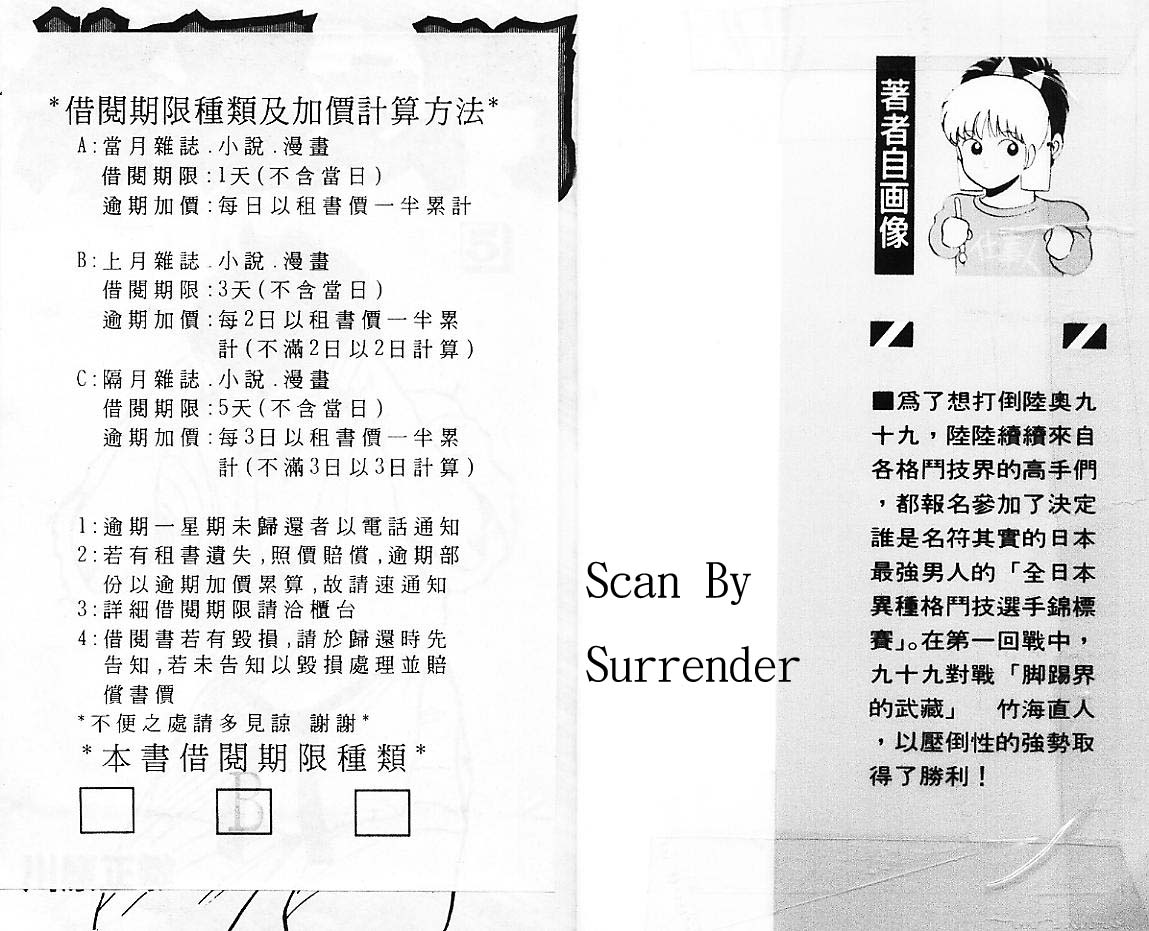 *借閱期限種類及加價計算方法*
A:當月雜誌.小說.漫畫
借閱期限:1天(不含當日)
逾期加價:每日以租書價一半累計
B:上月雜誌.小說.漫畫
借閱期限:3天(不含當日)
逾期加價:每2日以租書價一半累
計(不滿2日以2日計算)
C:隔月雜誌.小說.漫畫
借閱期限:5天(不含當日)
逾期加價:每3日以租書價一半累
計(不滿3日以3日計算)
1:逾期一星期未歸還者以電話通知
2:若有租書遺失,照價賠償,逾期部
份以逾期加價累算,故請速通知
3:詳細借閱期限請洽櫃台
4:借閱書若有毀損,請於歸還時先
告知,若未告知以毀損處理並賠
償書價
*不便之處請多見諒 謝謝*
*本書借閱期限種類*
B
Scan By
Surrender
著者自画像
■爲了想打倒陸奧九
十九,陸陸續續來自
各格鬥技界的高手們
,都報名參加了決定
誰是名符其實的日本
最強男人的「全日本
異種格鬥技選手錦標
賽」。在第一回戰中,
九十九對戰「脚踢界
的武藏」 竹海直人
,以壓倒性的強勢取
得了勝利!